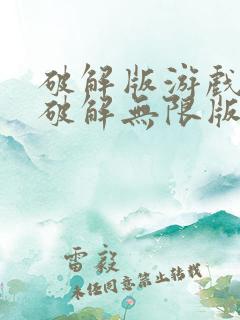 破解版游戏
破解無限版
雷毅
未经同意禁止转载